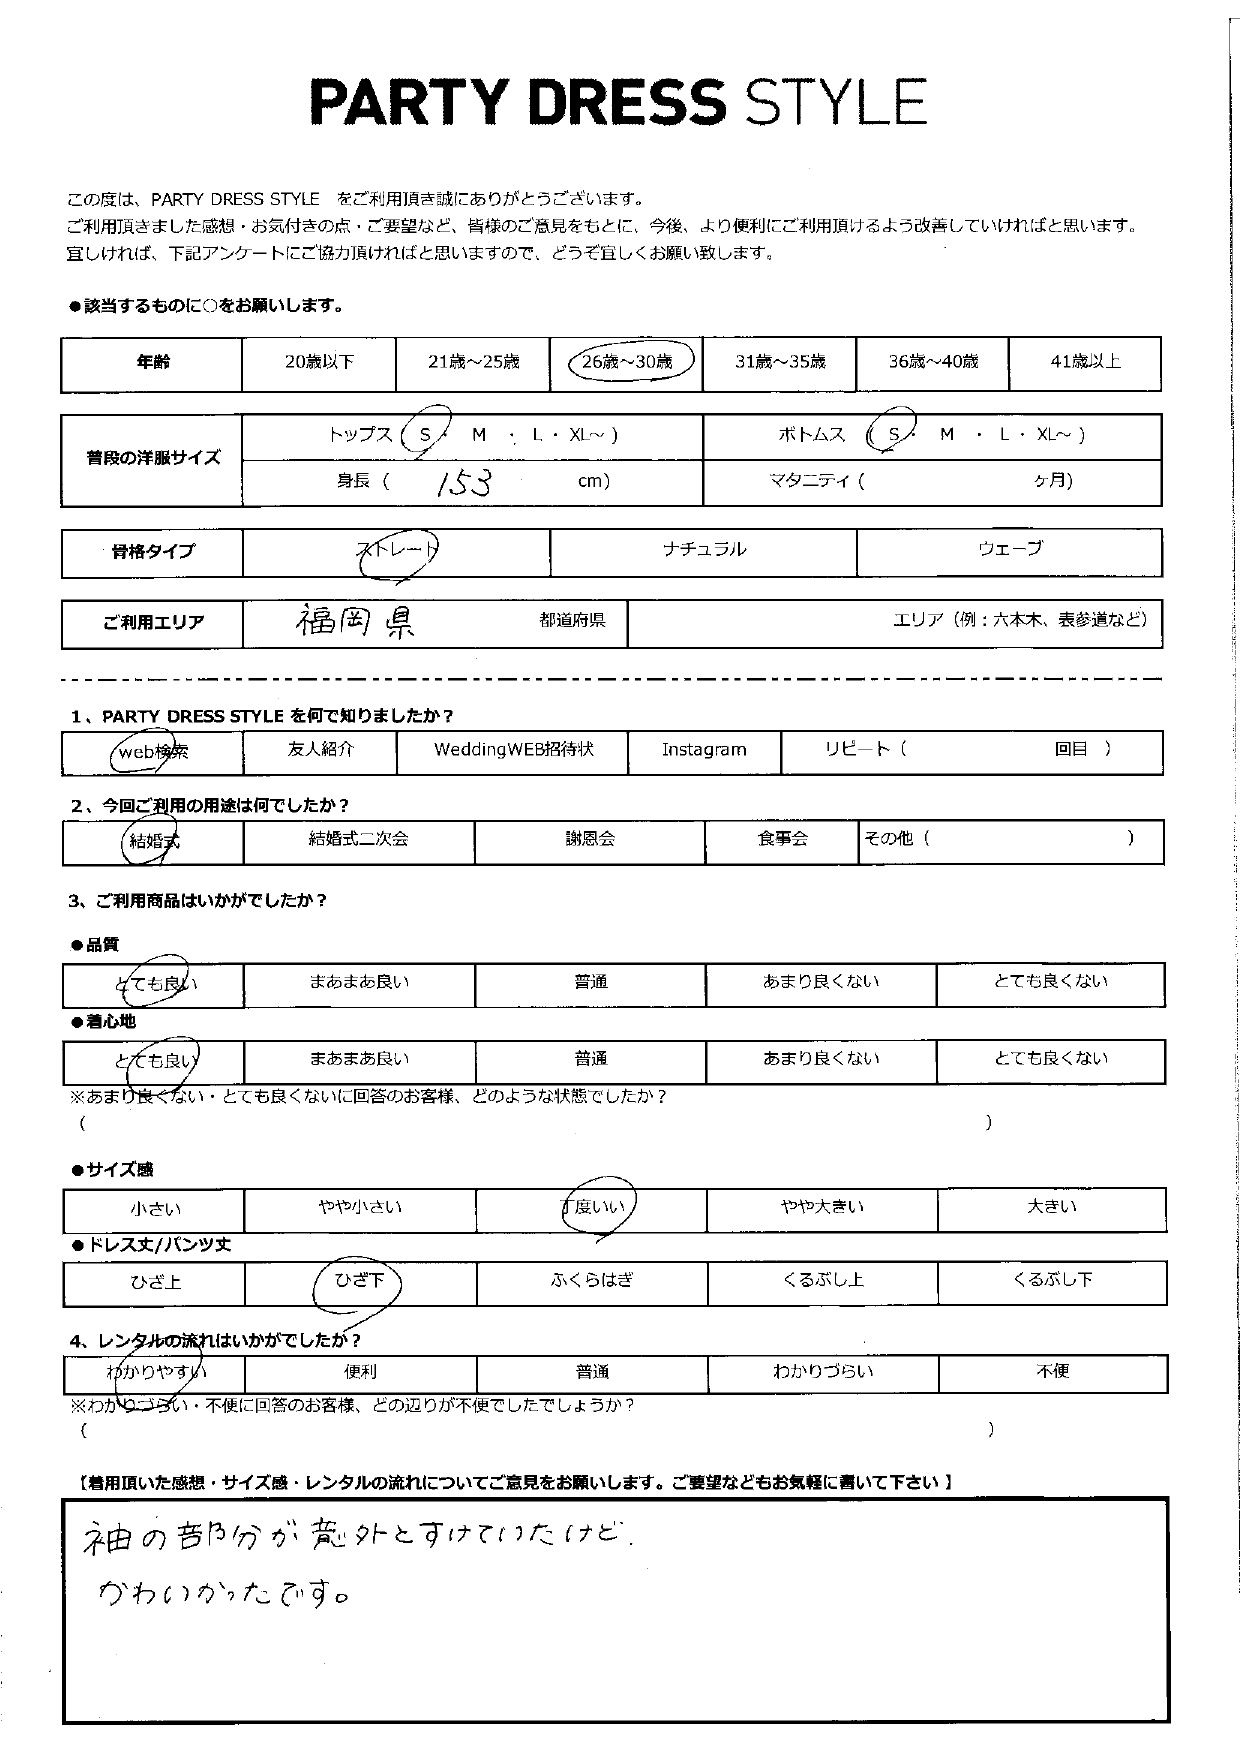 PARTY DRESS STYLE
この度は、PARTY DRESS STYLE をご利用頂き誠にありがとうございます。
ご利用頂きました感想・お気付きの点・ご要望など、皆様のご意見をもとに、今後、より便利にご利用頂けるよう改善していければと思います。
宜しければ、下記アンケートにご協力頂ければと思いますので、どうぞ宜しくお願い致します。
●該当するものに○をお願いします。
年齢 20歳以下 21歳～25歳 26歳～30歳 31歳～35歳 36歳～40歳 41歳以上
普段の洋服サイズ トップス ( S ・ M ・ L ・ XL～ ) ボトムス ( S ・ M ・ L ・ XL～ )
身長 ( 153 cm) マタニティ ( ヶ月)
骨格タイプ ストレート ナチュラル ウェーブ
ご利用エリア 福岡県 都道府県 エリア（例：六本木、表参道など）
1、PARTY DRESS STYLE を何で知りましたか？
web検索 友人紹介 WeddingWEB招待状 Instagram リピート ( 回目 )
2、今回ご利用の用途は何でしたか？
結婚式 結婚式二次会 謝恩会 食事会 その他 ( )
3、ご利用商品はいかがでしたか？
●品質
とても良い まあまあ良い 普通 あまり良くない とても良くない
●着心地
とても良い まあまあ良い 普通 あまり良くない とても良くない
※あまり良くない・とても良くないに回答のお客様、どのような状態でしたか？
( )
●サイズ感
小さい やや小さい 丁度いい やや大きい 大きい
●ドレス丈/パンツ丈
ひざ上 ひざ下 ふくらはぎ くるぶし上 くるぶし下
4、レンタルの流れはいかがでしたか？
わかりやすい 便利 普通 わかりづらい 不便
※わかりづらい・不便に回答のお客様、どの辺りが不便でしたでしょうか？
( )
【着用頂いた感想・サイズ感・レンタルの流れについてご意見をお願いします。ご要望などもお気軽に書いて下さい】
袖の部分が意外とすけていたけど、
かわいかったです。